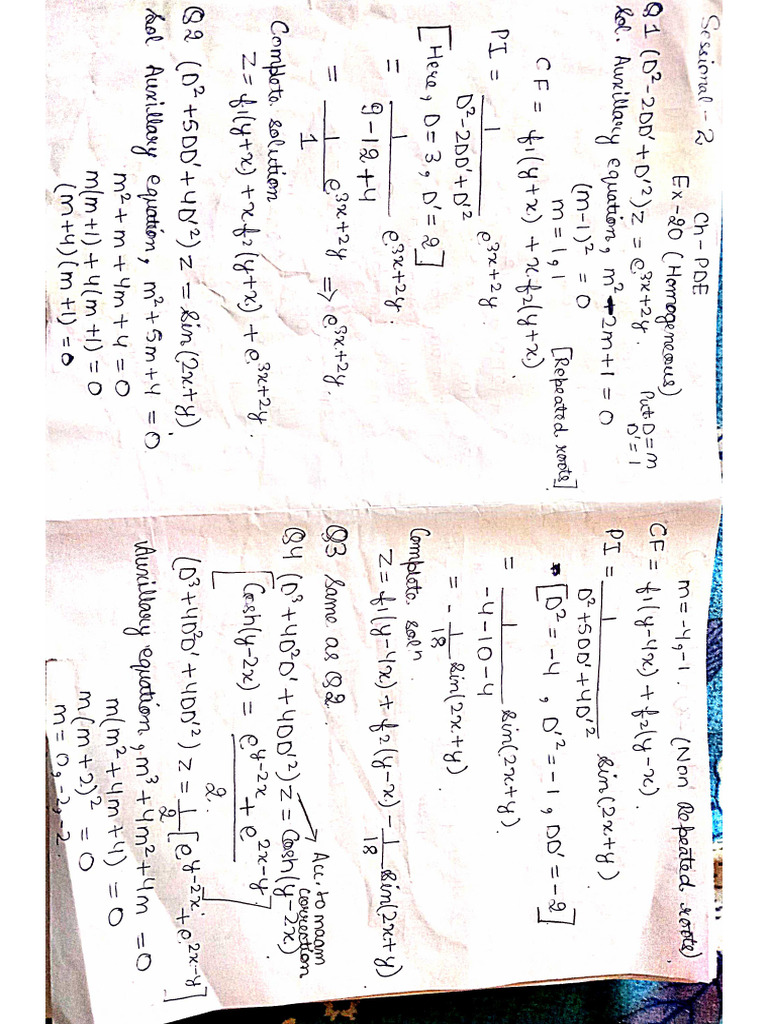 Sessional - 2
Ch - PDE
Ex - 20 (Homogeneous)
Q1 (D² - 2DD' + D'²) z = e^3x+2y.
Put D = m
D' = 1
Sol. Auxillary equation, m² - 2m + 1 = 0
(m-1)² = 0
m = 1, 1 [Repeated roots]
CF = f1(y+x) + x f2(y+x).
PI = 1/(D² - 2DD' + D'²) e^3x+2y.
[Here, D = 3, D' = 2]
= 1/(9 - 12 + 4) e^3x+2y.
= 1/1 e^3x+2y ⇒ e^3x+2y.
Complete solution
z = f1(y+x) + x f2(y+x) + e^3x+2y.
Q2 (D² + 5DD' + 4D'²) z = sin(2x+y)
Sol Auxillary equation, m² + 5m + 4 = 0.
m² + m + 4m + 4 = 0
m(m+1) + 4(m+1) = 0
(m+4)(m+1) = 0
m = -4, -1. (Non Repeated roots).
CF = f1(y-4x) + f2(y-x).
PI = 1/(D² + 5DD' + 4D'²) sin(2x+y)
[D² = -4, D'² = -1, DD' = -2]
= 1/(-4 - 10 - 4) sin(2x+y).
= - 1/18 sin(2x+y).
Complete solⁿ.
z = f1(y-4x) + f2(y-x) - 1/18 sin(2x+y)
Q3 Same as Q2.
Q4 (D³ + 4D²D' + 4DD'²) z = Cosh(y-2x)
→ Acc. to maam correction
[Cosh(y-2x) = (e^y-2x + e^2x-y)/2.]
(D³ + 4D²D' + 4DD'²) z = 1/2 [e^y-2x + e^2x-y]
Auxillary equation, m³ + 4m² + 4m = 0
m(m² + 4m + 4) = 0
m(m+2)² = 0
m = 0, -2, -2.